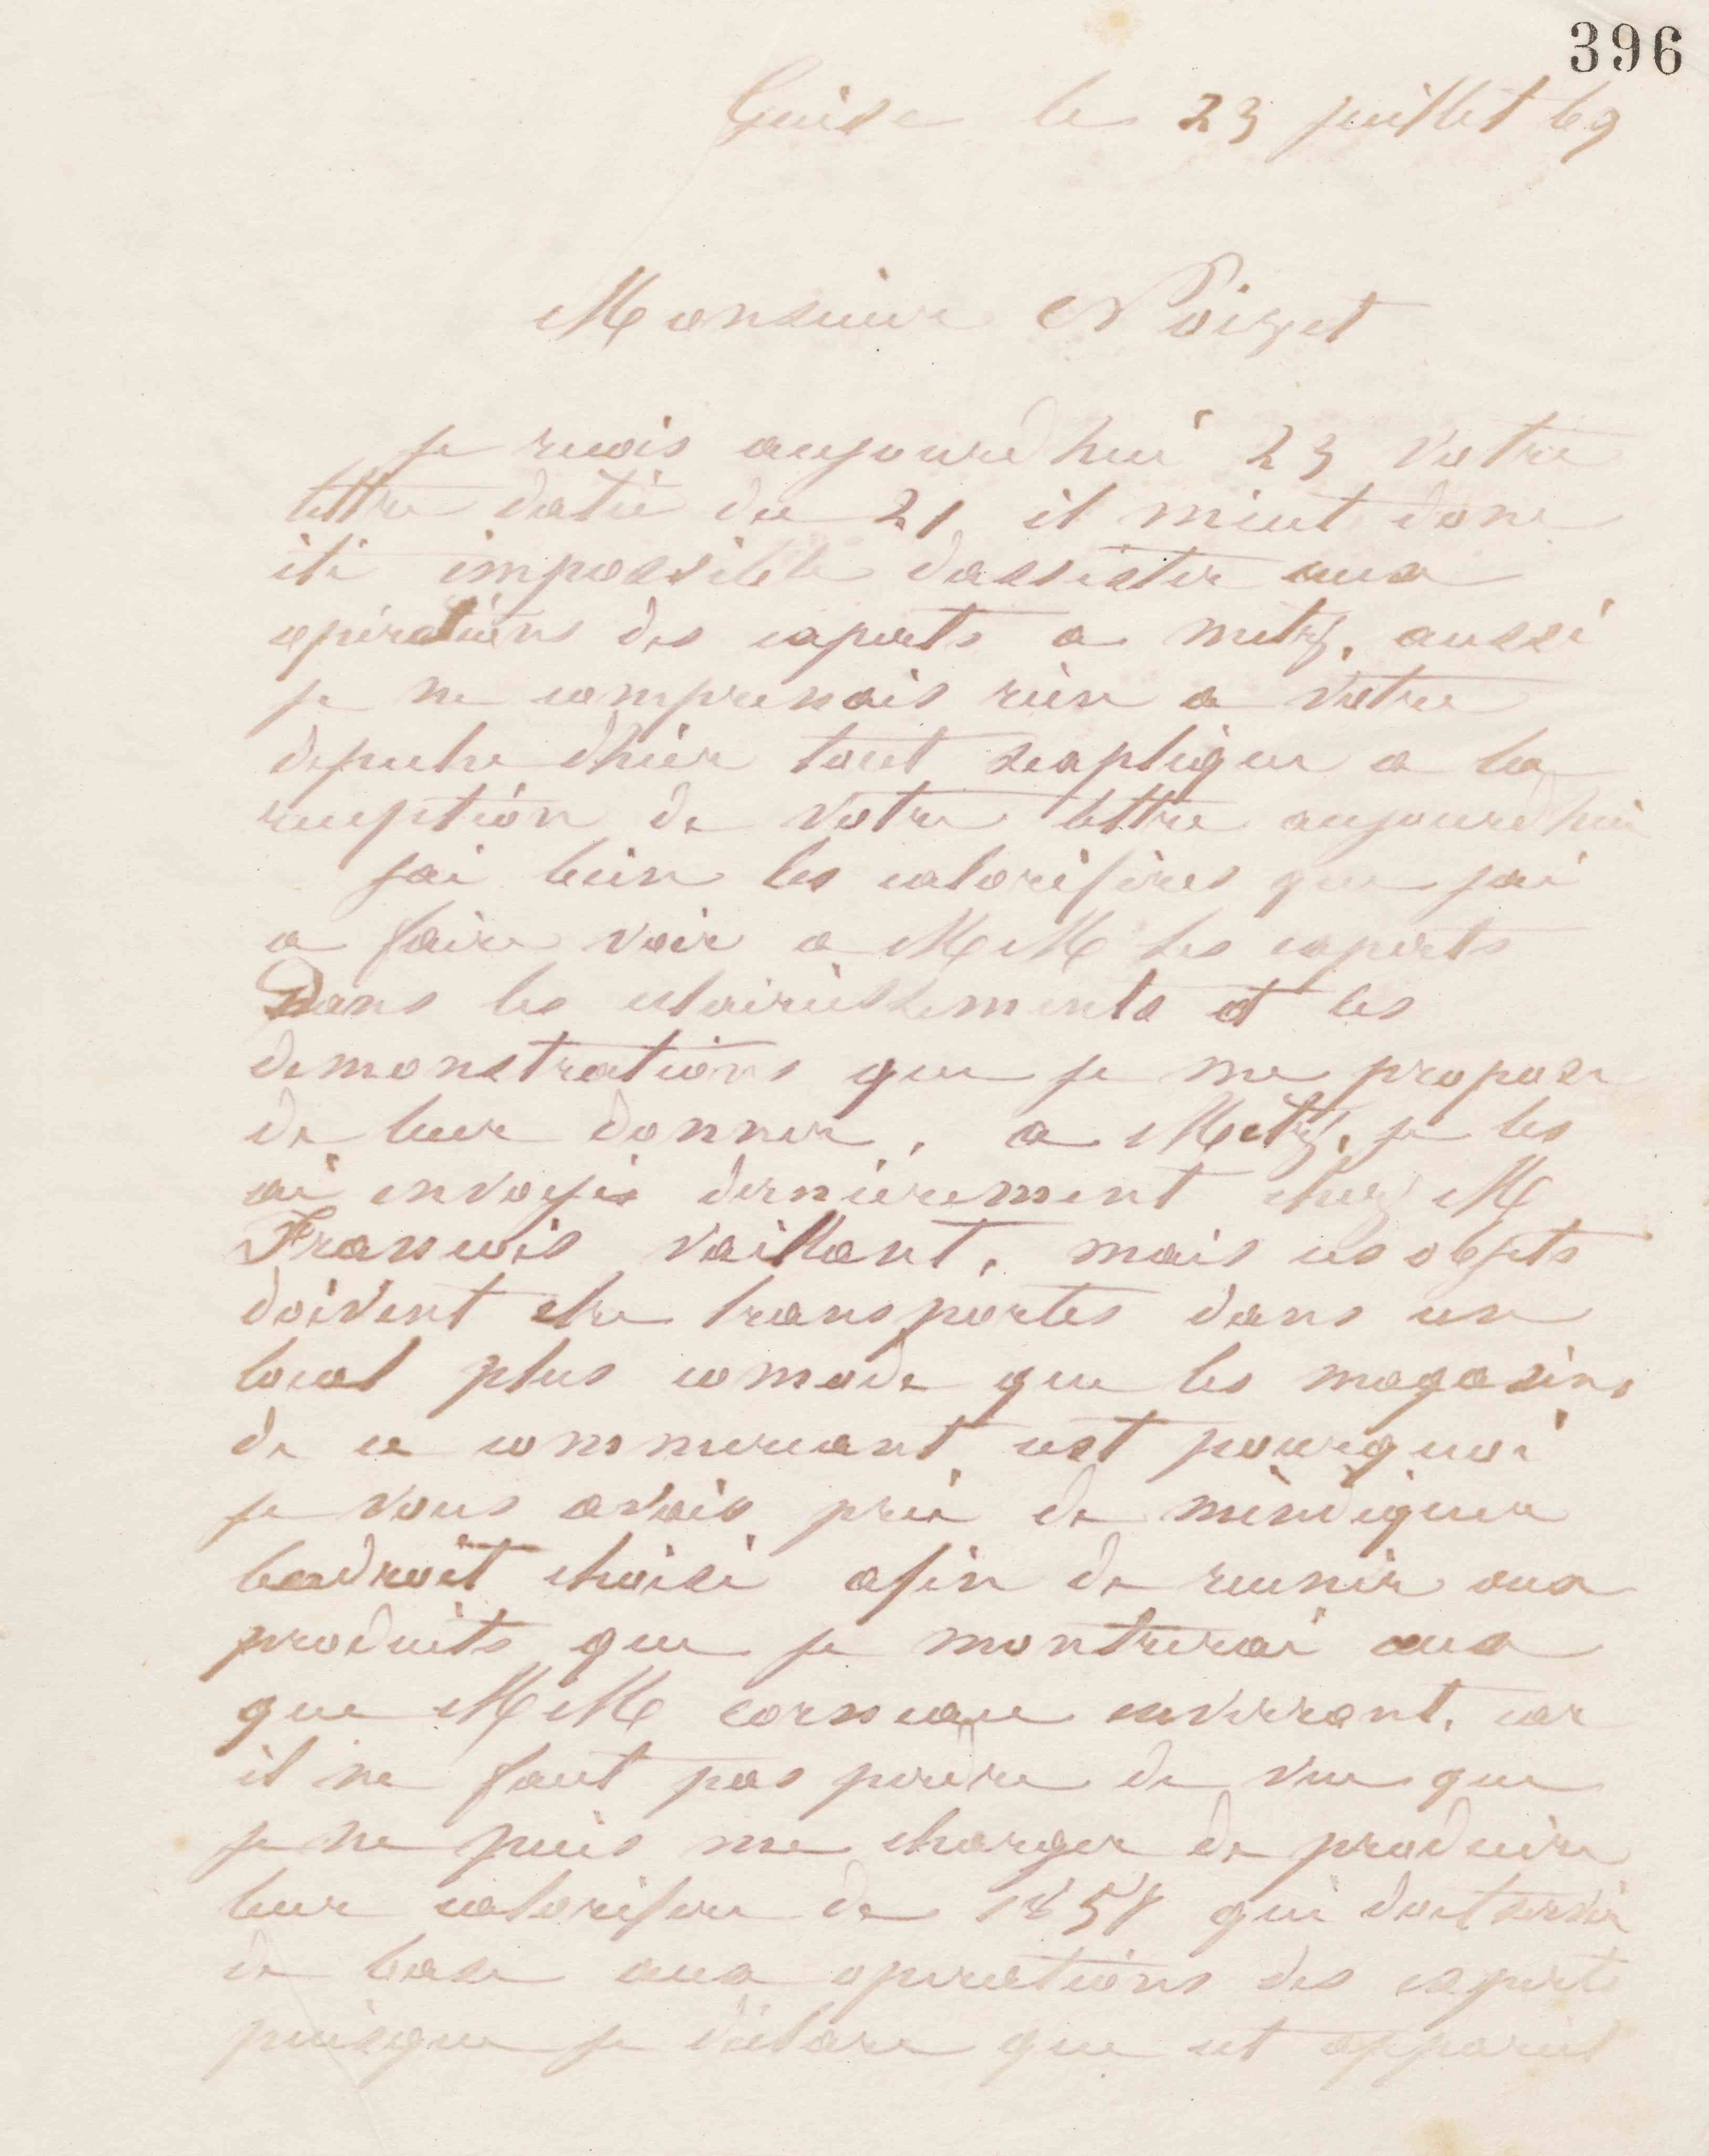 396
Guise le 23 juillet 69
Monsieur Noizet
je recois aujourdhui 23 votre
lettre datée du 21, il meut donc
été impossible dassister aux
opérations des experts a metz. aussi
je ne comprenais rien a votre
depeche dhier tout sexplique a la
reception de votre lettre aujourdhui
jai bien les calorifères que jai
a faire voir a MM les experts
Dans les eclaircissements et les
demonstrations que je me propose
de leur donner, a Metz, je les
ai envoyés dernièrement chez M
Francois vaillant, mais ces objets
doivent etre transportes dans un
local plus comode que les magasins
de ce commercant cest pourquoi
je vous avais prié de mindiquer
lendroit choisi afin de reunir aux
produits que je montrerai ceux
que MM corneau enverront. car
il ne faut pas perdre de vue que
je ne puis me charger de produire
leur calorifere de 1858 qui doit servir
de base aux operations des experts
puisque je déclare que cet appareil